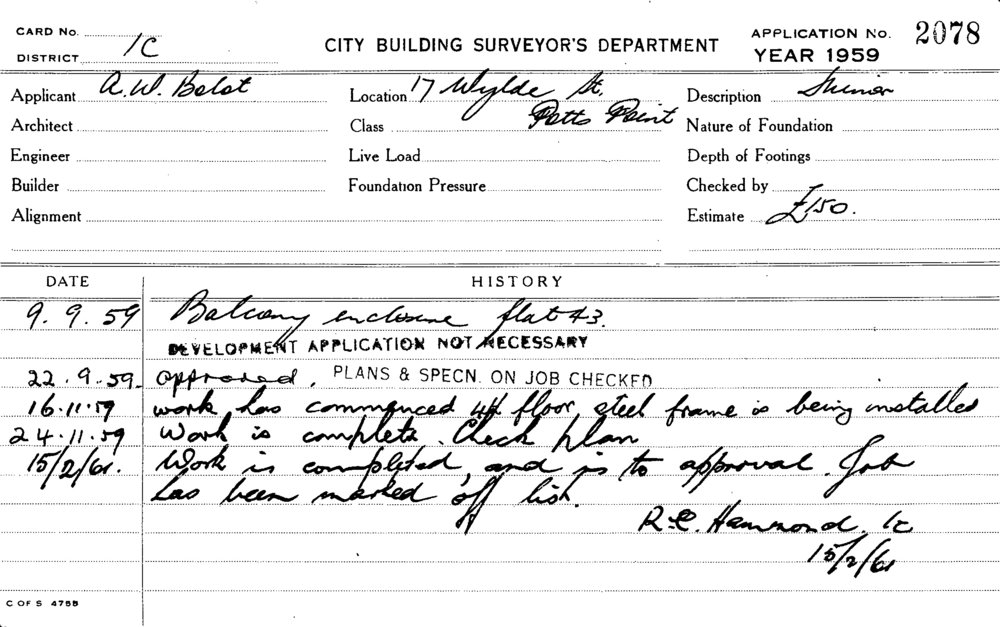 CARD No.
DISTRICT 1C
CITY BUILDING SURVEYOR'S DEPARTMENT
APPLICATION No. 2078
YEAR 1959
Applicant A.W. Balot
Location 17 Wylde St.
Potts Point
Description Minor
Architect
Class
Nature of Foundation
Engineer
Live Load
Depth of Footings
Builder
Foundation Pressure
Checked by
Alignment
Estimate £150.
DATE HISTORY
9.9.59 Balcony enclosure flat 43.
DEVELOPMENT APPLICATION NOT NECESSARY
22.9.59. approved. PLANS & SPECN. ON JOB CHECKED
16.11.59 work has commenced 4th floor, steel frame is being installed
24.11.59 Work is complete. Check plan
15/2/61. Work is completed, and is to approval. Job
has been marked off list.
R.C. Hammond. 1c
15/2/61
C OF S 475B